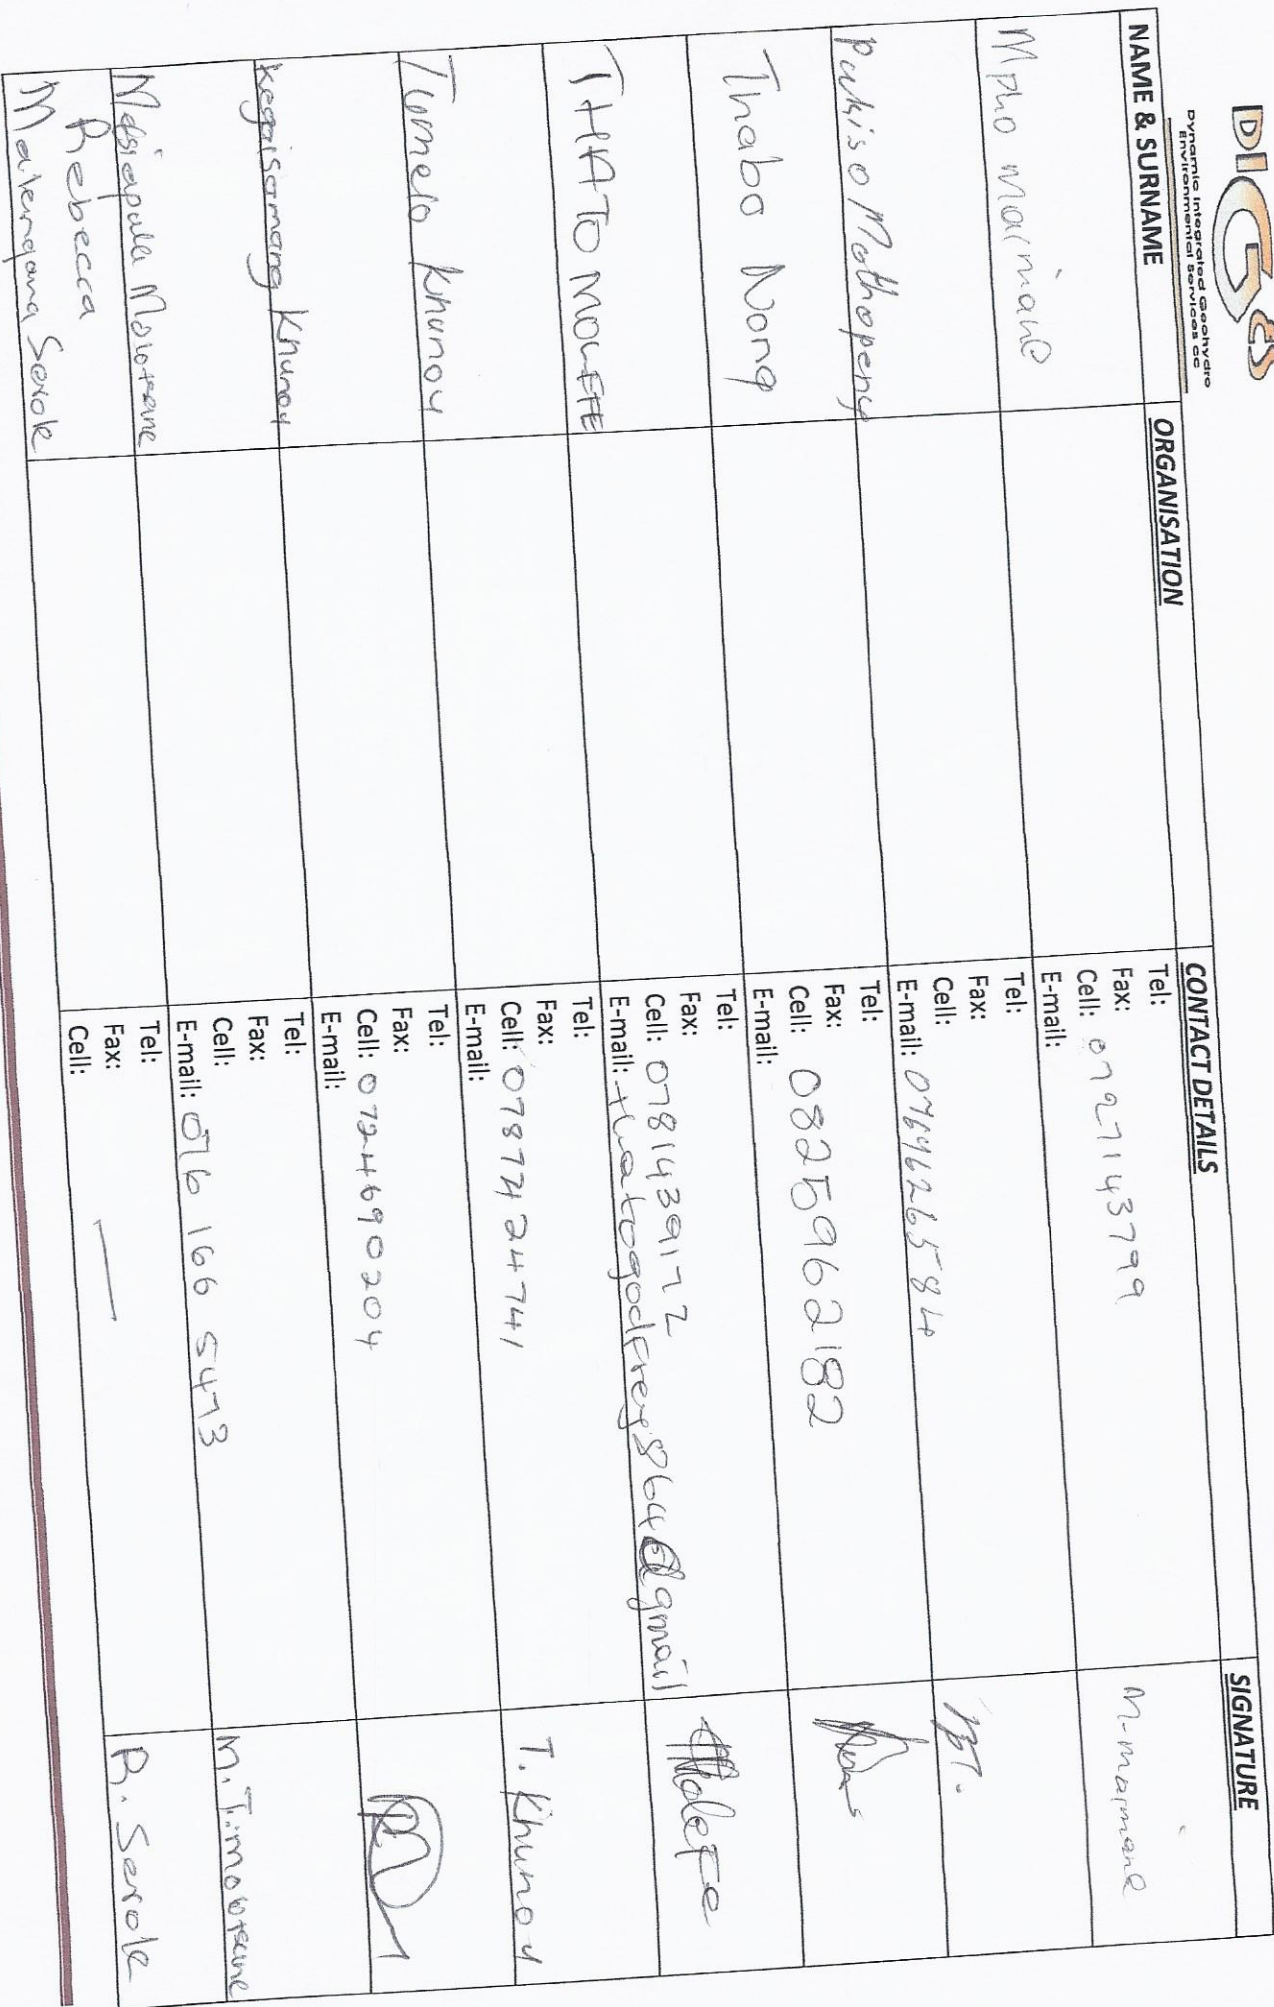 DIGES
Dynamic Integrated Geohydro
Environmental Services cc
NAME & SURNAME ORGANISATION CONTACT DETAILS SIGNATURE
Mpho Maimane
Tel:
Fax:
Cell: 0727143799
E-mail:
M-maimane
Pakiso Mothopeny
Tel:
Fax:
Cell:
E-mail: 0769626584
Thabo Nong
Tel:
Fax:
Cell: 0825962182
E-mail:
THATO MOLEFE
Tel:
Fax:
Cell: 0781439172
E-mail: thatogodfrey864@gmail
Molefe
Tumelo Khunou
Tel:
Fax:
Cell: 0787424741
E-mail:
T. Khunou
Kegaisamang Khunou
Tel:
Fax:
Cell: 0724690204
E-mail:
Molotsane
Tel:
Fax:
Cell:
E-mail: 076 166 5473
Rebecca
Serole
Tel:
Fax:
Cell: —
R. Serole